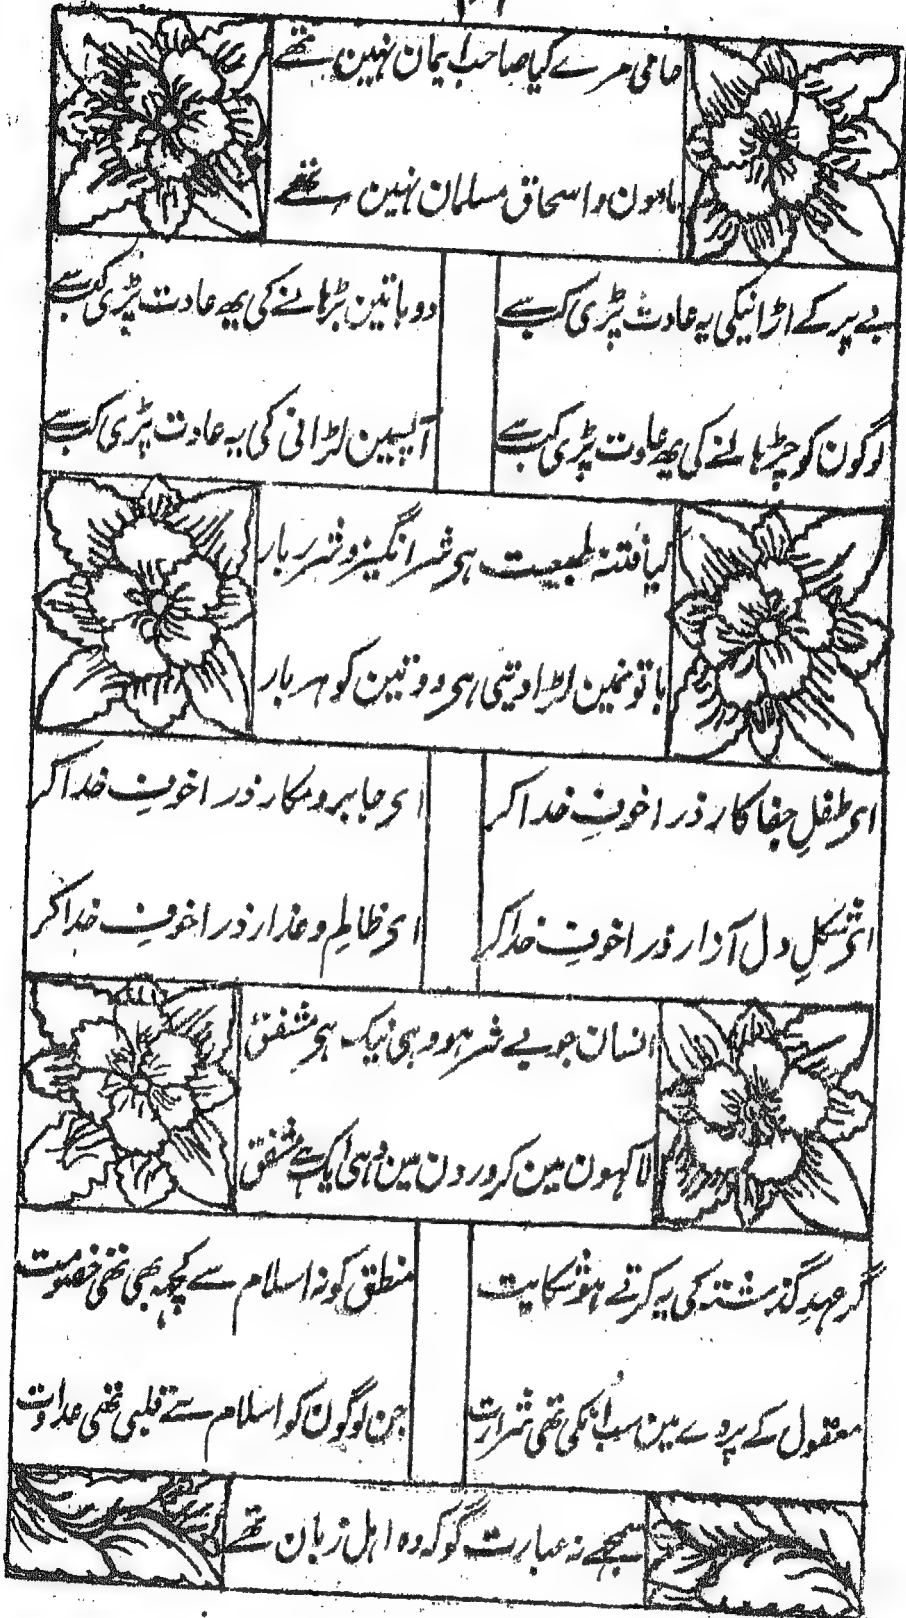 حامی مرے کیا صاحب ایمان نہین تھے
مامون و اسحاق مسلمان نہین تھے
بے پر کے اڑانیکی یہ عادت پڑی کب سے
دو باتین بڑہانے کی یہ عادت پڑی کب سے
لوگون کو چڑہانے کی یہ عادت پڑی کب سے
آپسمین لڑانی کی یہ عادت پڑی کب سے
کیا فتنہ طبیعت ہی شر انگیز و شرر بار
باتونمین لڑا دیتی ہی دو تین کو ہر بار
ای طفلِ جفاکار ذرا خوفِ خدا کر
ای جابر و مکار ذرا خوفِ خدا کر
ای شکلِ دل آزار ذرا خوفِ خدا کر
ای ظالم و غدار ذرا خوفِ خدا کر
انسان جو بے شر ہو وہی نیک ہی مشفق
لاکہون مین کرورون مین وہی ایک ہے مشفق
گر عہدِ گذشتہ کی یہ کرتے ہو شکایت
منطق کو نہ اسلام سے کچھ بھی تھی خصومت
معقول کے پردے مین سب اُنکی تھی شرارت
جن لوگون کو اسلام سے قلبی تھی عداوت
سمجھے نہ عبارت گو کہ وہ اہل زبان تھے